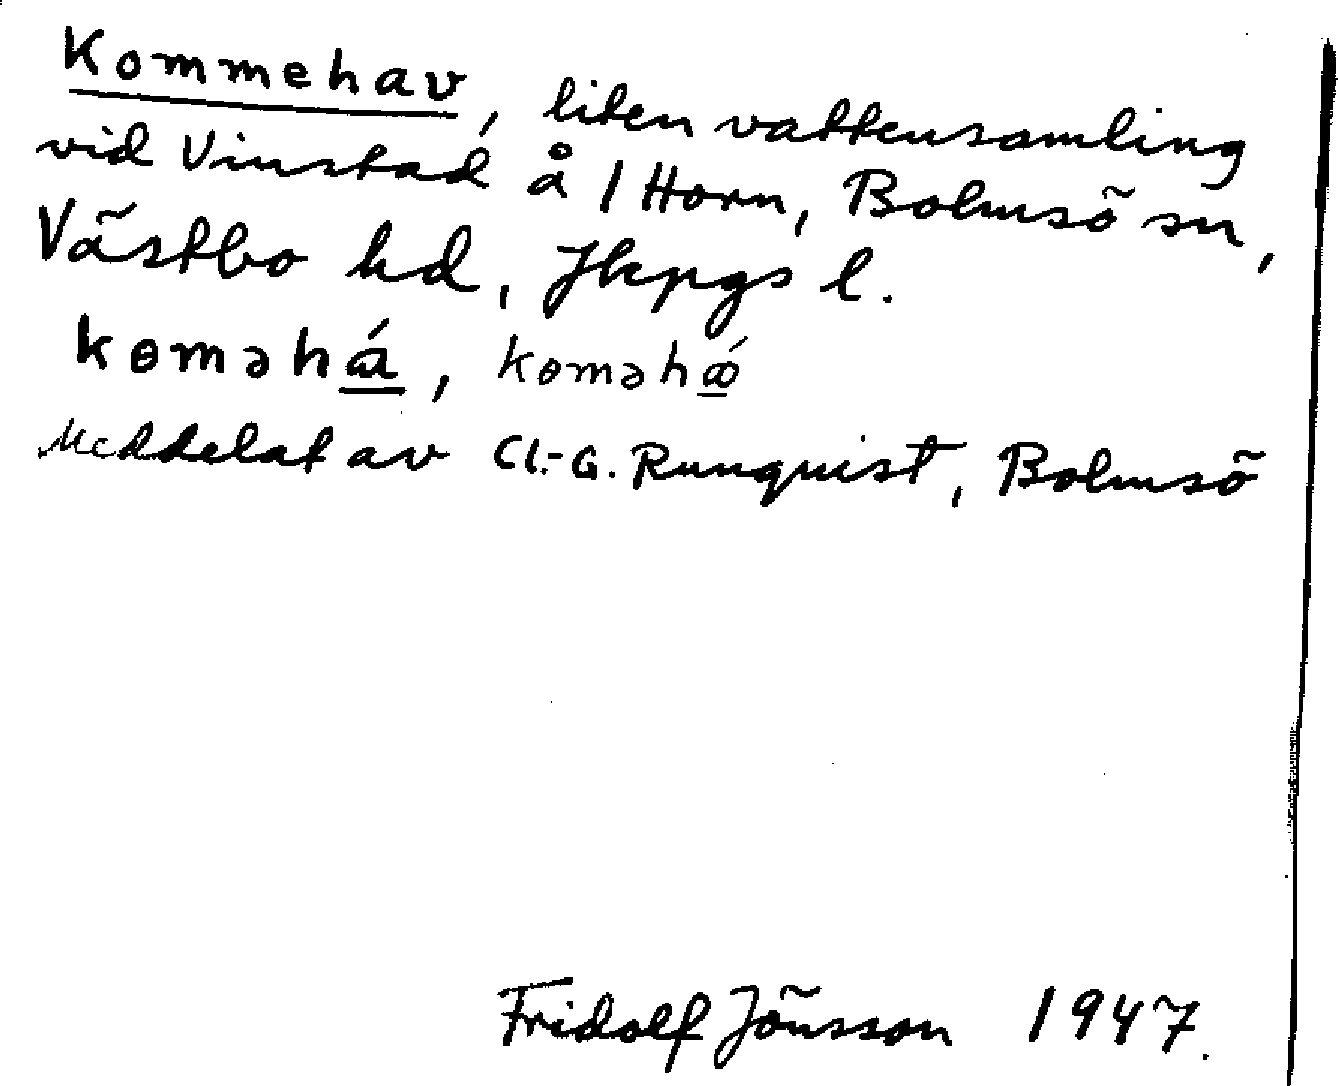 Kommehav, liten vattensamling
vid Vinstad å 1 Horn, Bolmsö sn,
Västbo hd, Jkpgs l.
kɵməhá, kɵməhǻ
Meddelat av Cl.-G. Runquist, Bolmsö
Fridolf Jönsson 1947.